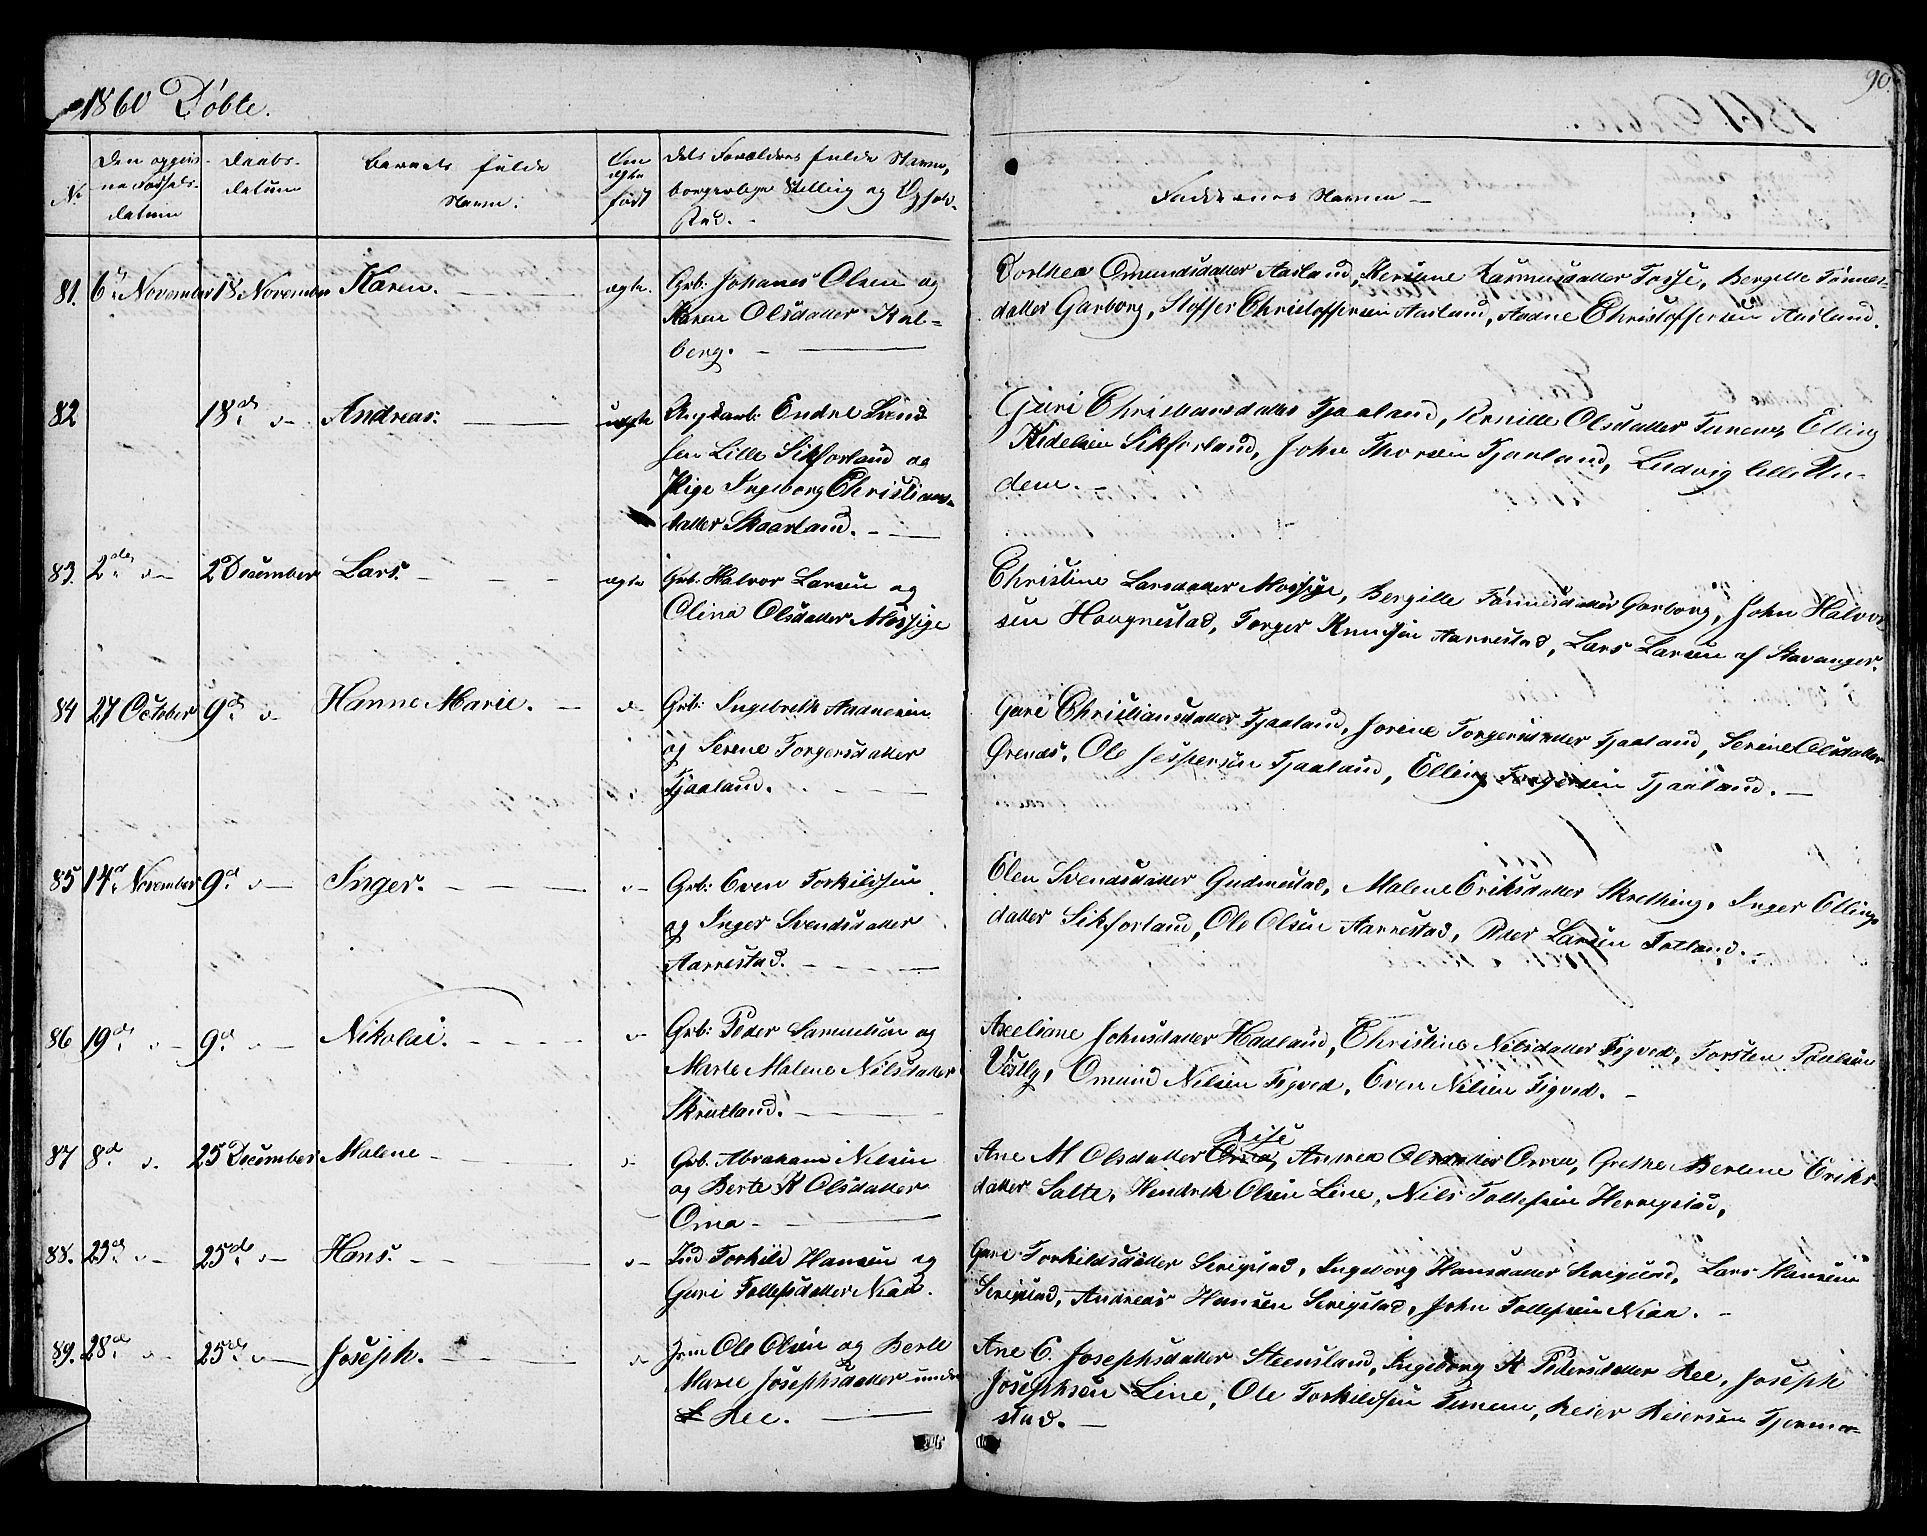 1860 Döbte.
90.
No
Den opgiv-
ne Födsels-
datum
Daabs-
datum
Barnets fulde
Navn.
Om
ægte
födt
Dets Forældres fulde Navn,
borgerlige Stilling og Ophol-
sted.
Faddernes Navne
81. 6te November 18 November Karen. ægte. Grb: Johanes Olsen og
Karen Olsdatter Kal=
berg.
Dorthea Omundsdatter Aasland, Rasmusdatter Fosse, Bergitte Tönnes-
datter Garborg, Stoffer Christoffersen Aasland, Aadne Christoffersen Aasland.
82 18de do Andreas. uægte Ungkarl: Endre Svend
sen Lille Sikforland og
Pige Ingeborg Christians-
datter Skaarland.
Guri Christiansdatter Tjaaland, Olsdatter Tunem, Elling
Sikforland, John Thorsen Tjaaland, Ludvig lille Un-
dem.
83. 2den do 2 December Lars. ægte Grb: Halvor Larsen og
Olina Olsdatter Mossige
Christine Larsdatter Mossige, Bergitte Tönnesdatter Garborg, John Halvor
sen Haugnestad, Torger Knudsen Aarrestad, Lars Larsen af Stavanger.
84 27 October 9de do Hanne Marie. do Grb: Ingebreth Aadnesen
og Serene Torgersdatter
Tjaaland.
Guri Christiansdatter Tjaaland, Jorine Torgersdatter Tjaaland, Serine Olsdatter
Ole Jespersen Tjaaland, Elling Torgersen Tjaaland.
85 14de November 9de do Inger. do Grb: Even Torkildsen
og Inger Svendsdatter
Aarrestad.
Elen Svendsdatter Gudmestad, Malene Eriksdatter Skretting, Inger Ellings
datter Sikforland, Ole Olsen Aarrestad, Peder Larsen Fotland.
86 19de do 9de do Nikolai. do Grb: Peder Samuelsen og
Marte Malene Nilsdatter
Skratland.
Axeliane Johnsdatter Haaland, Christine Nilsdatter Tigved, Torsten Paulsen
Vestly, Omund Nilsen Tigved, Even Nilsen Tigved.
87 8de do 25 December Malene do Grb. Abraham Nilsen
og Berte K Olsdatter
Oma
Rise
Ane M Olsdatter Orrea, Andrea Olsdatter Orrea, Grethe Berlene Eriks-
datter Salte, Hendrik Olsen Line, Nils Tollefsen Herregstad,
88. 23de do 25de do Hans. do Ind Torkild Hansen og
Guri Tollefsdatter Niaa.
Guri Torkildsdatter Serigstad, Ingeborg Hansdatter Serigstad, Lars Hansen
Serigstad, Andreas Hansen Serigstad, John Tollefsen Niaa.
89. 28de do 25de do Joseph. do Ole Olsen og Berte
Marie Josephsdatter under
Ree.
Ane C. Josephsdatter Steensland, Ingeborg K Pedersdatter Ree, Joseph
Josephsen Line, Ole Torkildsen Tunem, Reier Reiersen Tjermo-
stad.